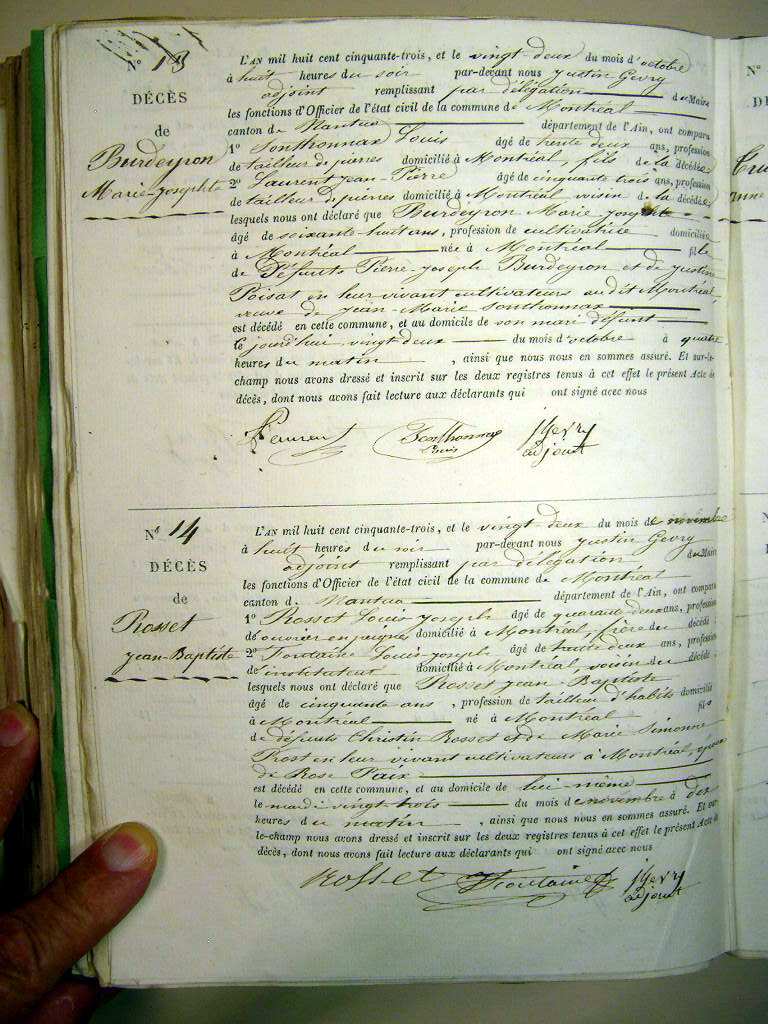 N° 13
DÉCÈS
de
Burdeyron
Marie-Josephte
L'AN mil huit cent cinquante-trois, et le vingt-deux du mois d'octobre
à huit heures du soir par-devant nous Justin Gevry
adjoint remplissant par délégation du Maire
les fonctions d'Officier de l'état civil de la commune de Montréal
canton de Nantua département de l'Ain, ont comparu
1° Sonthonnax Louis âgé de trente deux ans, profession
de tailleur de pierres domicilié à Montréal, fils de la décédée
2° Laurent Jean-Pierre âgé de cinquante trois ans, profession
de tailleur de pierres domicilié à Montréal voisin de la décédée
lesquels nous ont déclaré que Burdeyron Marie-Josephte
âgé de soixante-huit ans, profession de cultivatrice domiciliée
à Montréal née à Montréal fille
de Défunts Pierre-Joseph Burdeyron et de Justine
Poisat en leur vivant cultivateurs audit Montréal,
veuve de Jean-Marie Sonthonnax
est décédé en cette commune, et au domicile de son mari défunt
le jourd'hui vingt-deux du mois d'octobre à quatre
heures du matin, ainsi que nous nous en sommes assuré. Et sur-le-
champ nous avons dressé et inscrit sur les deux registres tenus à cet effet le présent Acte de
décès, dont nous avons fait lecture aux déclarants qui ont signé avec nous
Laurent Sonthonnax Louis JGevry adjoint
N° 14
DÉCÈS
de
Rosset
Jean-Baptiste
L'AN mil huit cent cinquante-trois, et le vingt deux du mois de novembre
à huit heures du soir par-devant nous Justin Gevry
adjoint remplissant par délégation du Maire
les fonctions d'Officier de l'état civil de la commune de Montréal
canton de Nantua département de l'Ain, ont comparu
1° Rosset Louis-Joseph âgé de quarante deux ans, profession
de ouvrier en peignes domicilié à Montréal, frère du décédé
2° Fontaine Louis-Joseph âgé de trente deux ans, profession
de instituteur domicilié à Montréal, voisin du décédé
lesquels nous ont déclaré que Rosset Jean-Baptiste
âgé de cinquante ans, profession de tailleur d'habits domicilié
à Montréal né à Montréal fils
de défunts Christin Rosset et de Marie Simonne
Prost en leur vivant cultivateurs à Montréal, époux
de Rose Paix
est décédé en cette commune, et au domicile de lui-même
le mardi vingt-trois du mois de novembre à dix
heures du matin, ainsi que nous nous en sommes assuré. Et sur-
le-champ nous avons dressé et inscrit sur les deux registres tenus à cet effet le présent Acte de
décès, dont nous avons fait lecture aux déclarants qui ont signé avec nous
Rosset Fontaine JGevry adjoint
N°